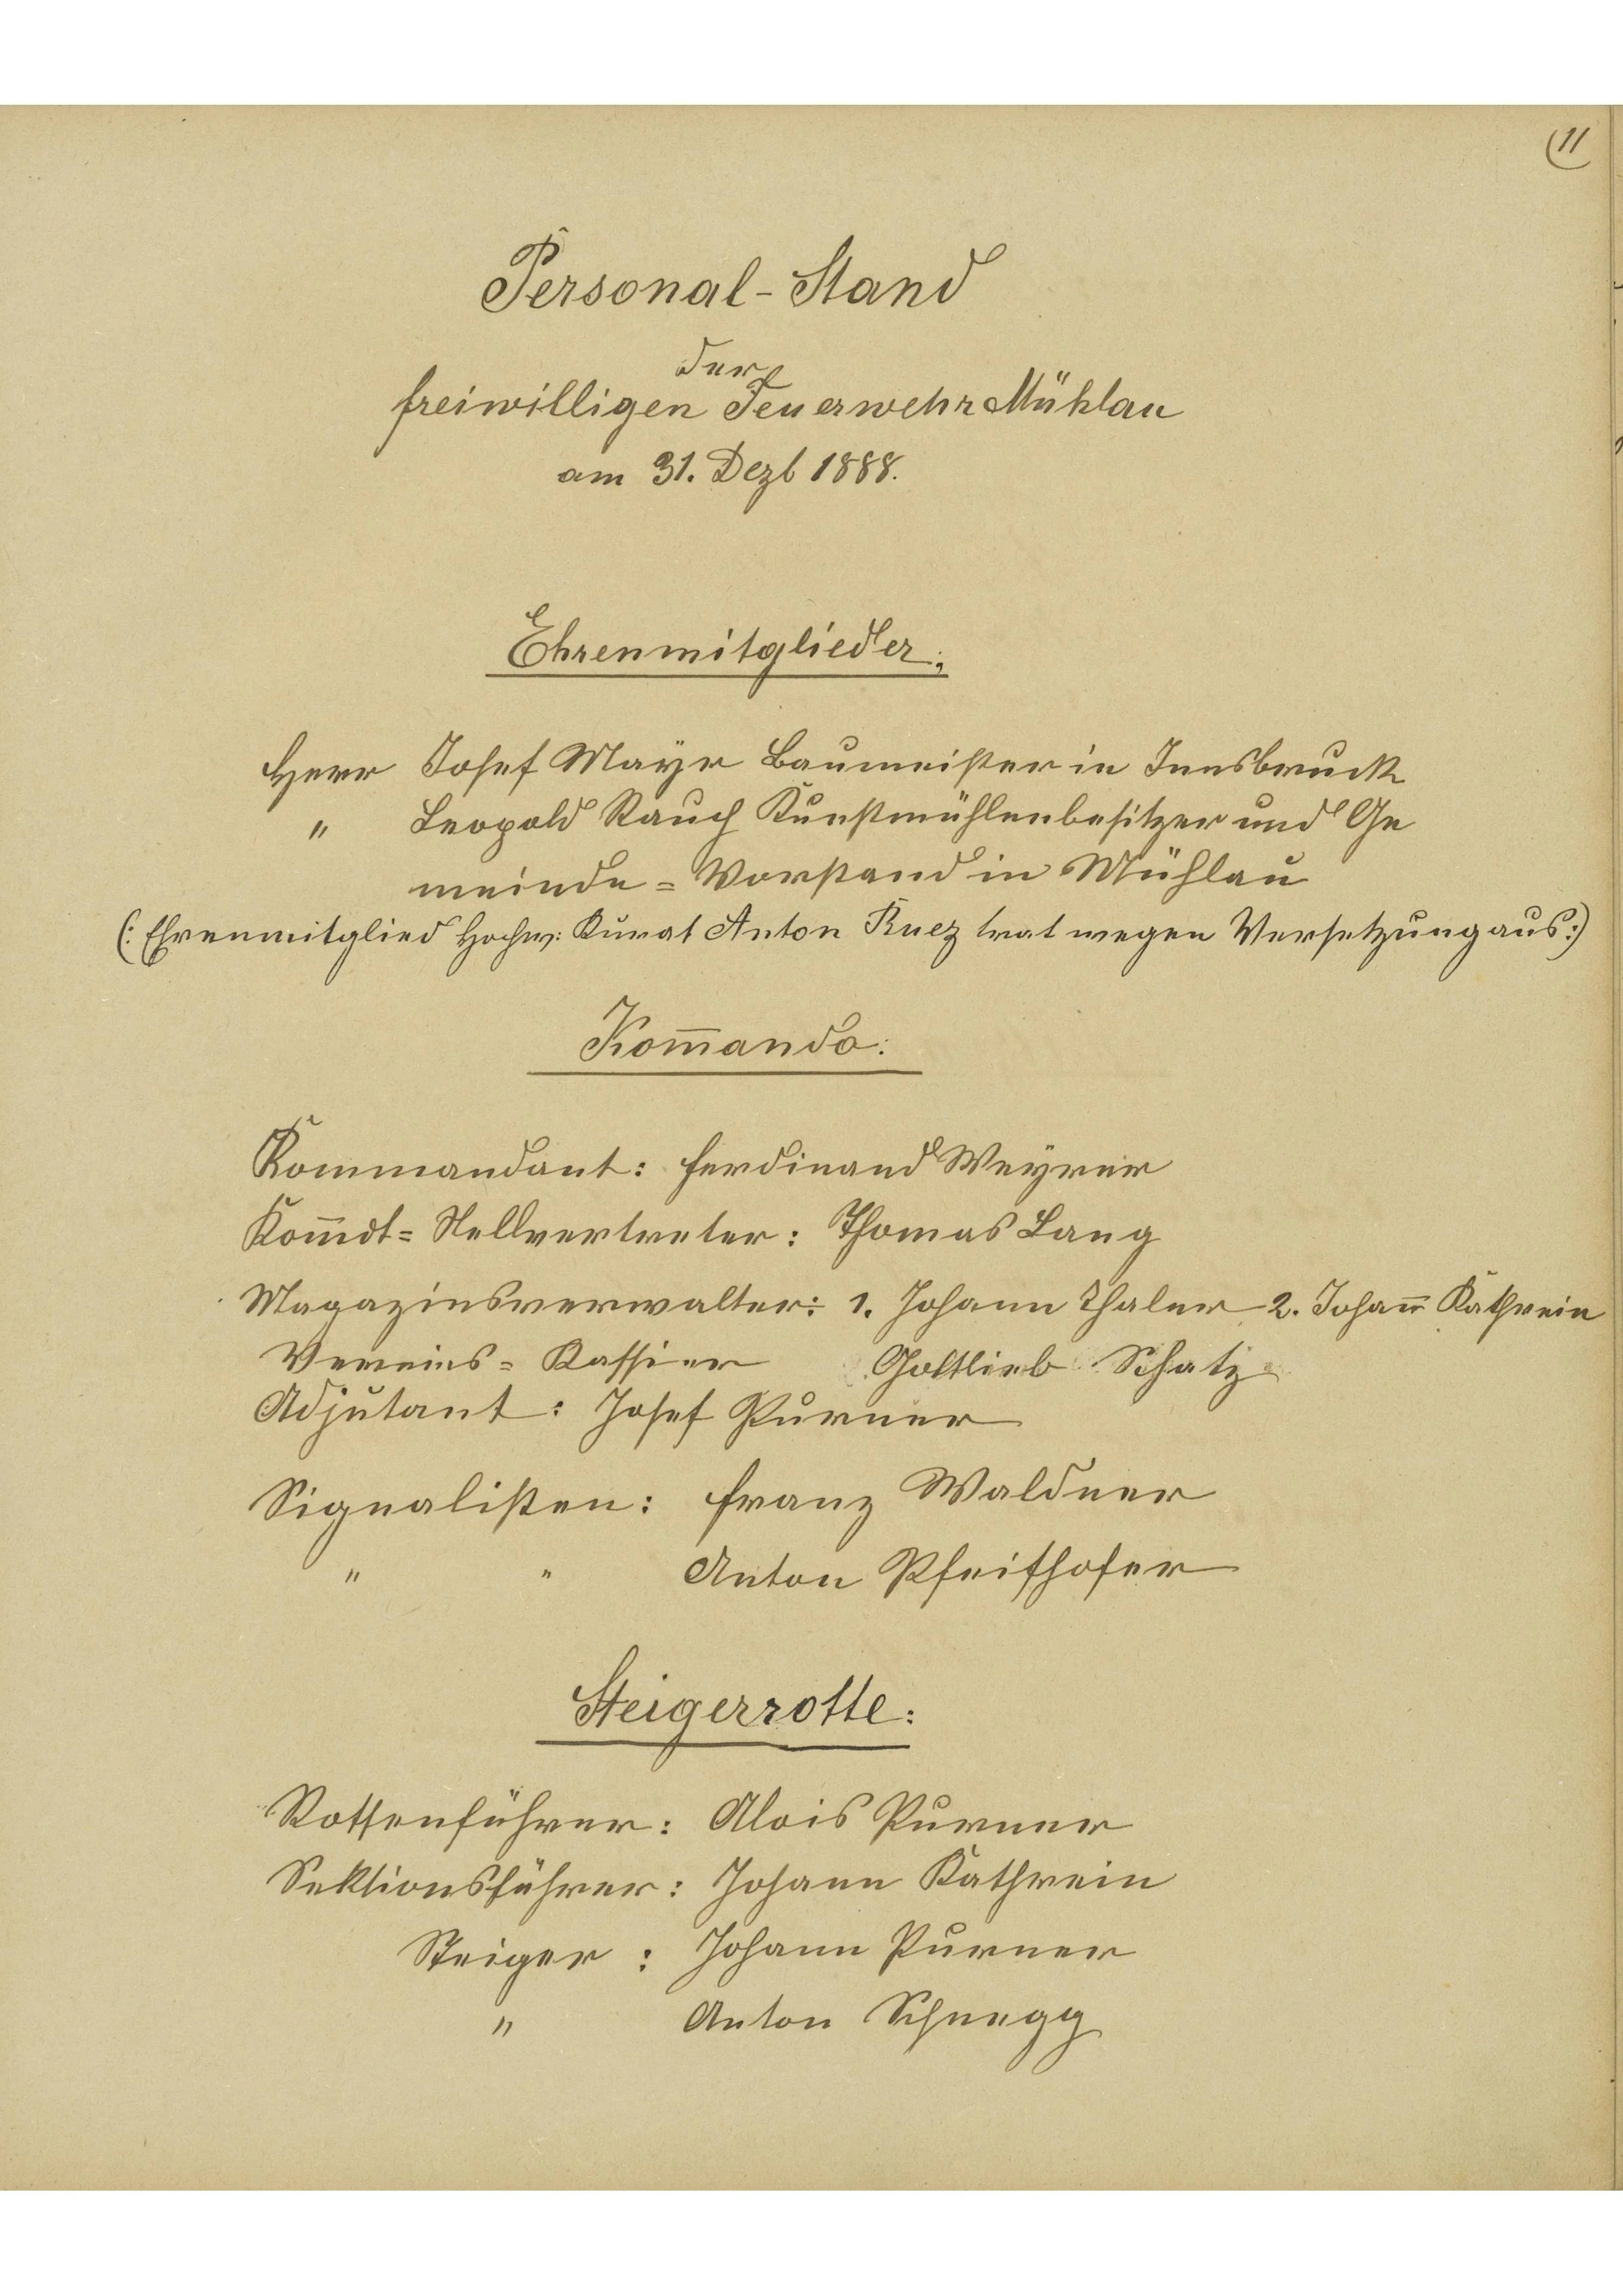 11
Personal-Stand
der
freiwilligen Feuerwehr Mühlau
am 31. Dezb 1888.
Ehrenmitglieder:
Herr Josef Mayr Baumeister in Innsbruck
" Leopold Rauch Kunstmühlenbesitzer und Ge
meinde=Vorstand in Mühlau
(: Ehrenmitglied Hochw: Kurat Anton Ruez trat wegen Versetzung aus:)
Kom̅ando:
Kommandant: Ferdinand Weyrer
Kom̅dt=Stellvertreter: Thomas Lang
Magazinsverwalter: 1. Johann Thaler 2. Johan̅ Kathrein
Vereins=Kassier Gottlieb Schatz
Adjutant: Josef Purner
Signalisten: Franz Waldner
" " Anton Pfeifhofer
Steigerrotte:
Rottenführer: Alois Purner
Sektionsführer: Johann Kathrein
Steiger: Johann Purner
" Anton Schnegg